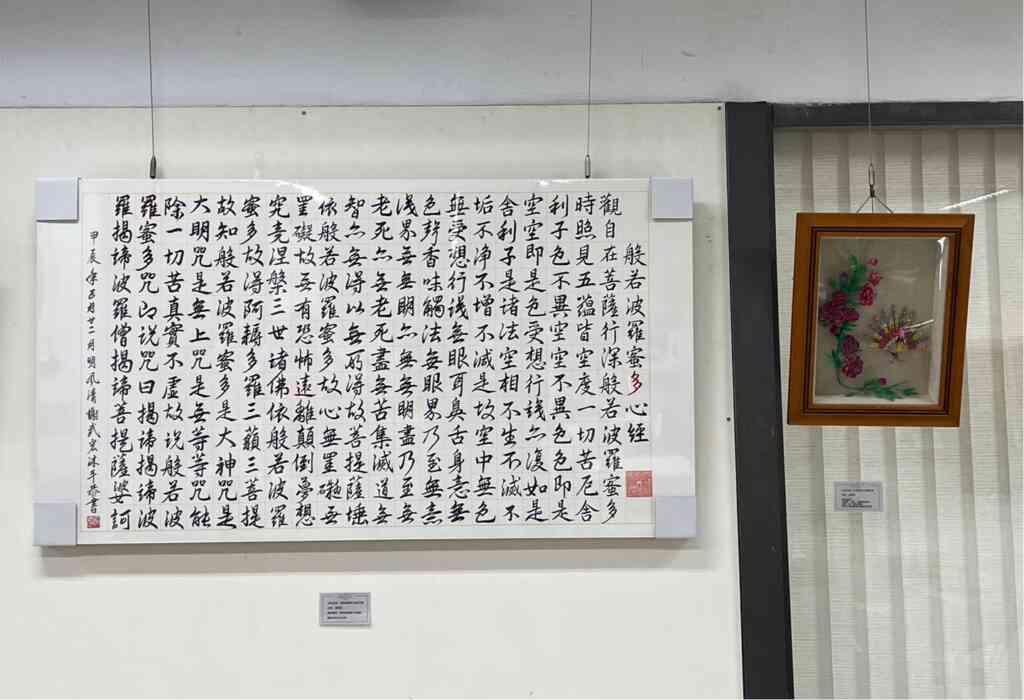 般若波羅蜜多心經
觀自在菩薩行深般若波羅蜜多
時照見五蘊皆空度一切苦厄舍
利子色不異空空不異色色即是
空空即是色受想行識亦復如是
舍利子是諸法空相不生不滅不
垢不淨不增不減是故空中無色
無受想行識無眼耳鼻舌身意無
色聲香味觸法無眼界乃至無意
識界無無明亦無無明盡乃至無
老死亦無老死盡無苦集滅道無
智亦無得以無所得故菩提薩埵
依般若波羅蜜多故心無罣礙無
罣礙故無有恐怖遠離顛倒夢想
究竟涅槃三世諸佛依般若波羅
蜜多故得阿耨多羅三藐三菩提
故知般若波羅蜜多是大神咒是
大明咒是無上咒是無等等咒能
除一切苦真實不虛故說般若波
羅蜜多咒即說咒曰揭諦揭諦波
羅揭諦波羅僧揭諦菩提薩婆訶
甲辰年五月廿二 明風清謝武宏沐手恭書